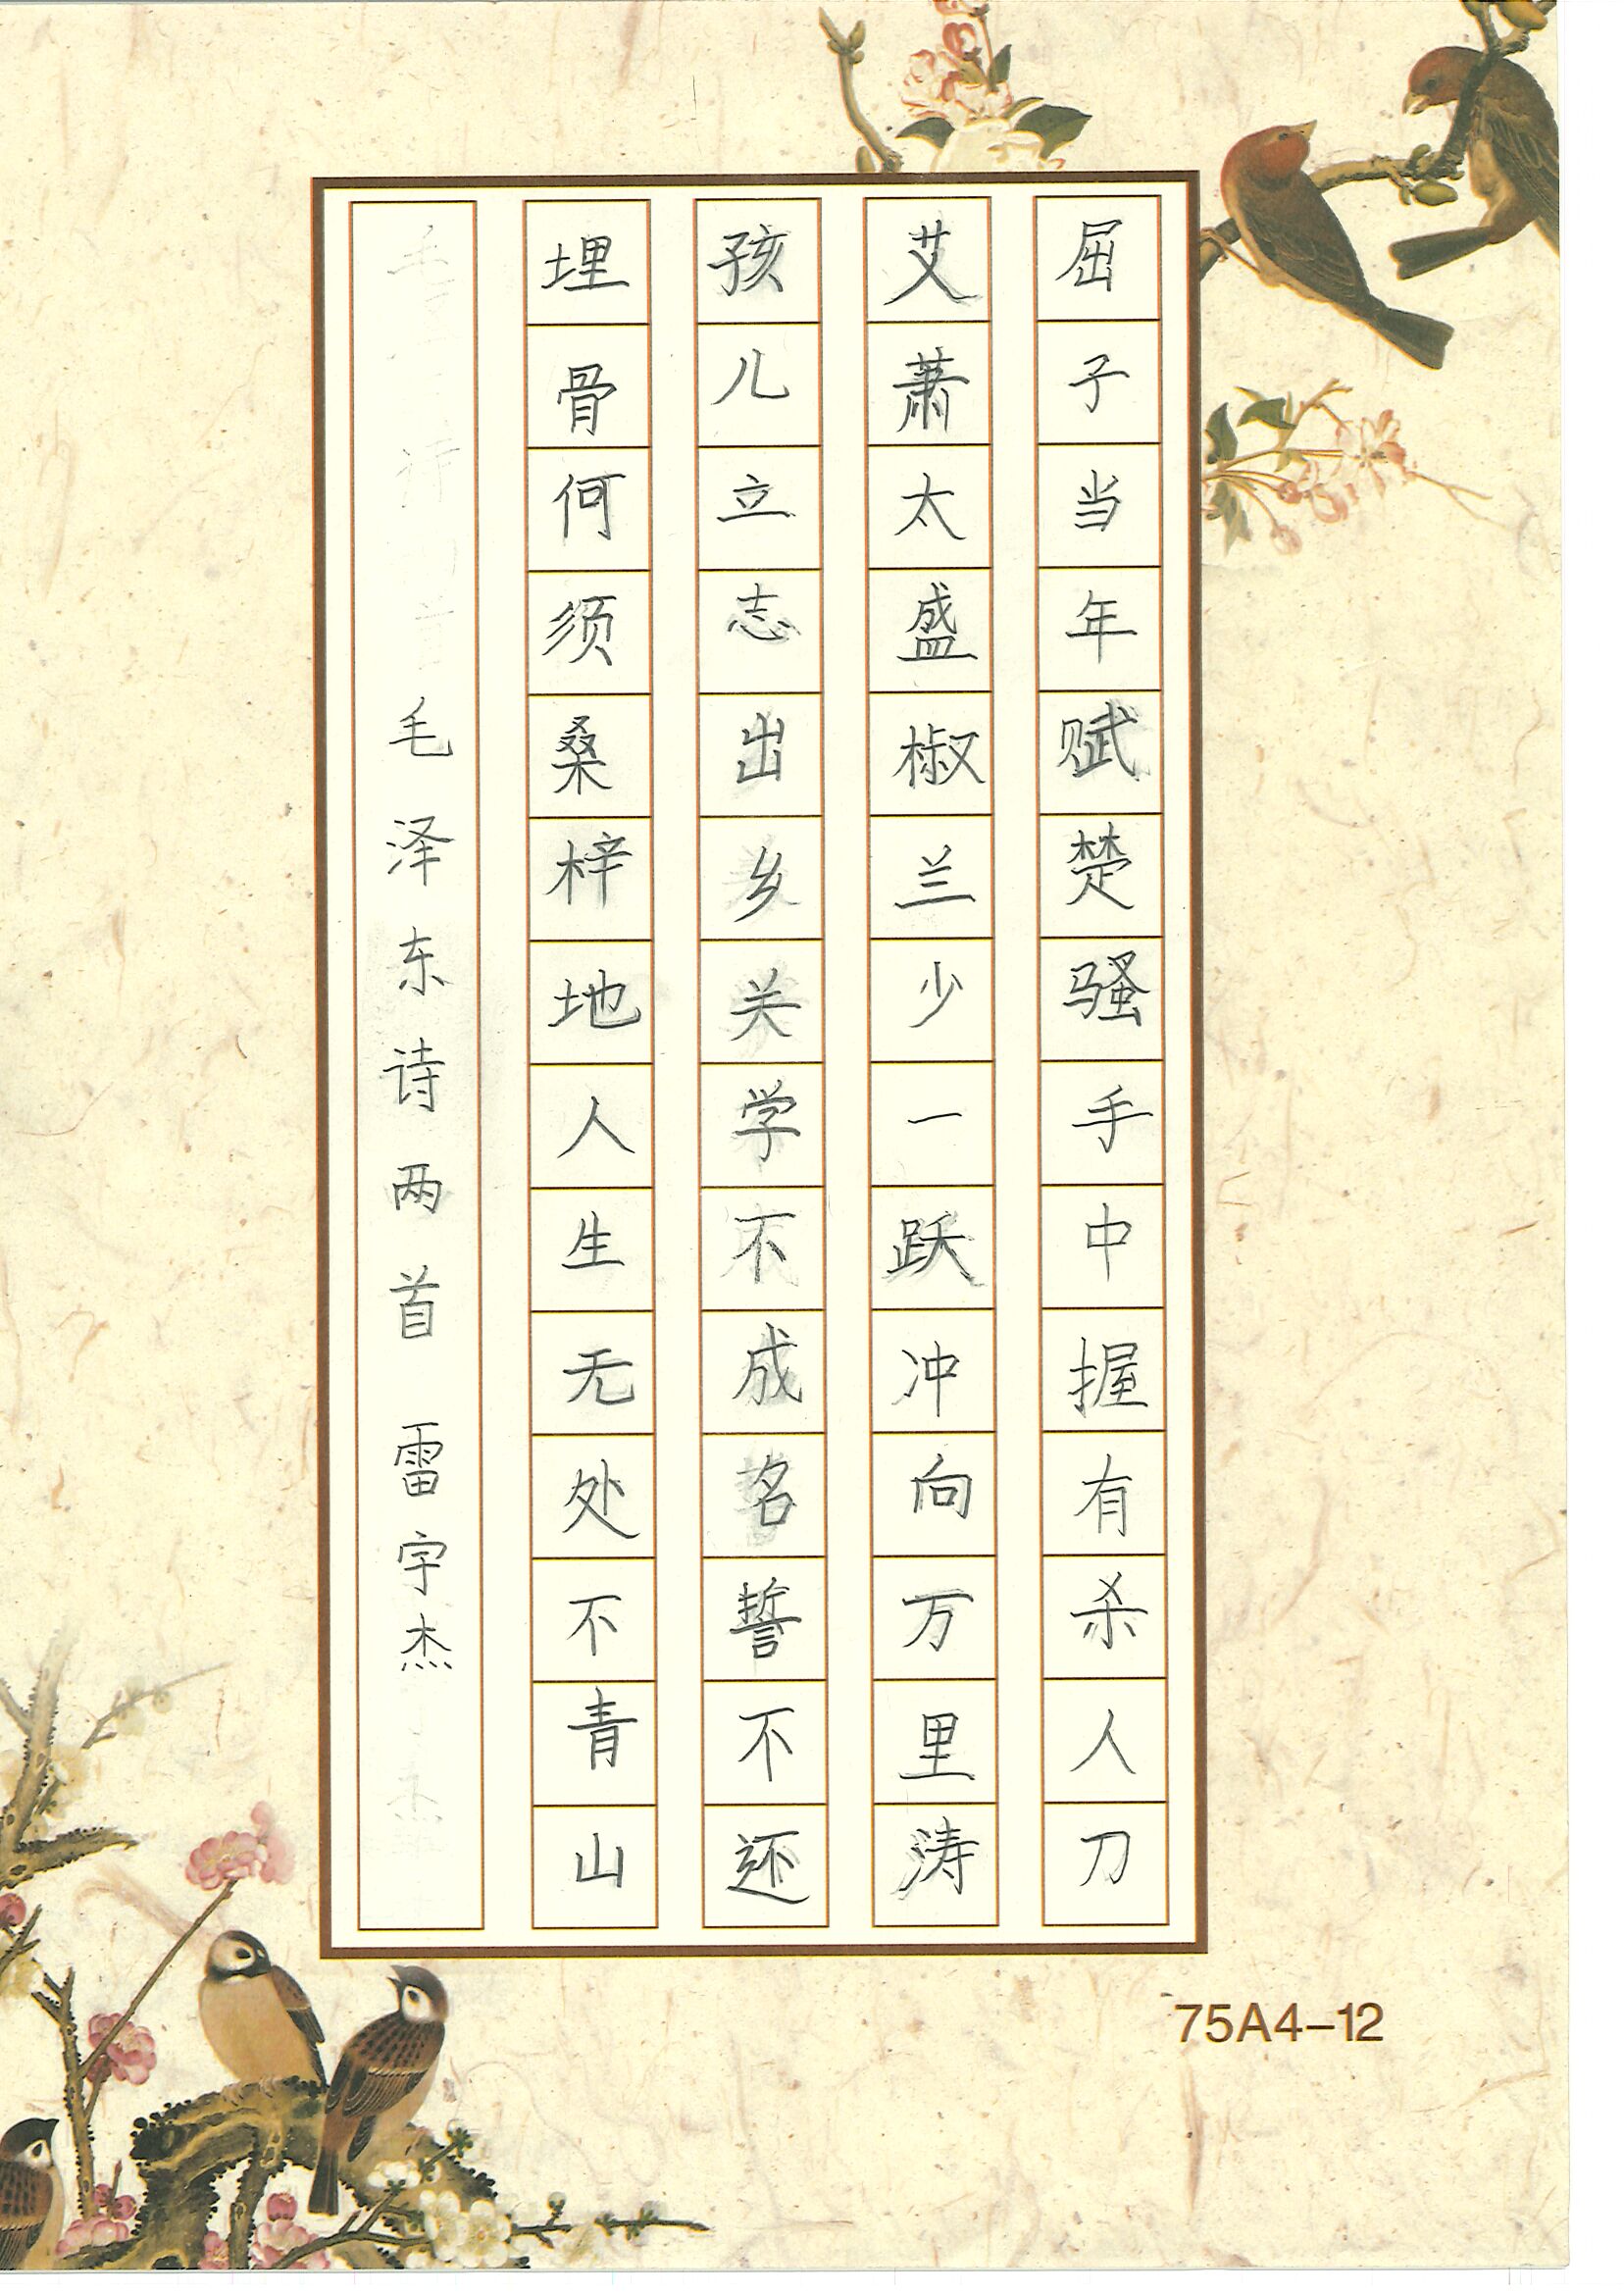 屈子当年赋楚骚手中握有杀人刀
艾萧太盛椒兰少一跃冲向万里涛
孩儿立志出乡关学不成名誓不还
埋骨何须桑梓地人生无处不青山
毛泽东诗两首 雷宇杰
75A4-12